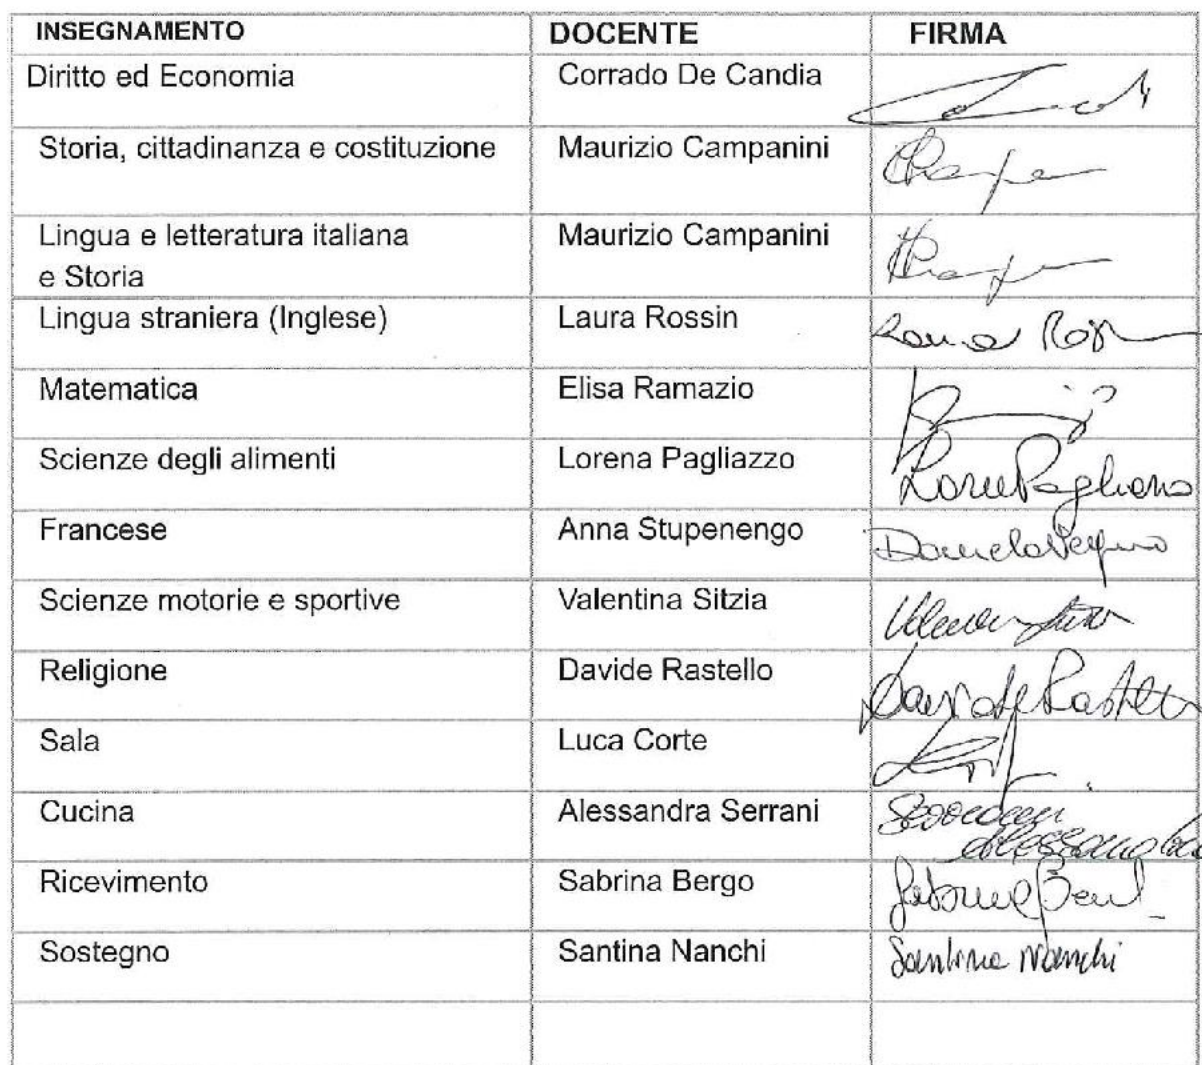 INSEGNAMENTO DOCENTE FIRMA
Diritto ed Economia Corrado De Candia
Storia, cittadinanza e costituzione Maurizio Campanini
Lingua e letteratura italiana Maurizio Campanini
e Storia
Lingua straniera (Inglese) Laura Rossin
Matematica Elisa Ramazio
Scienze degli alimenti Lorena Pagliazzo
Francese Anna Stupenengo
Scienze motorie e sportive Valentina Sitzia
Religione Davide Rastello Davide Rastello
Sala Luca Corte
Cucina Alessandra Serrani
Ricevimento Sabrina Bergo
Sostegno Santina Nanchi Santina Nanchi